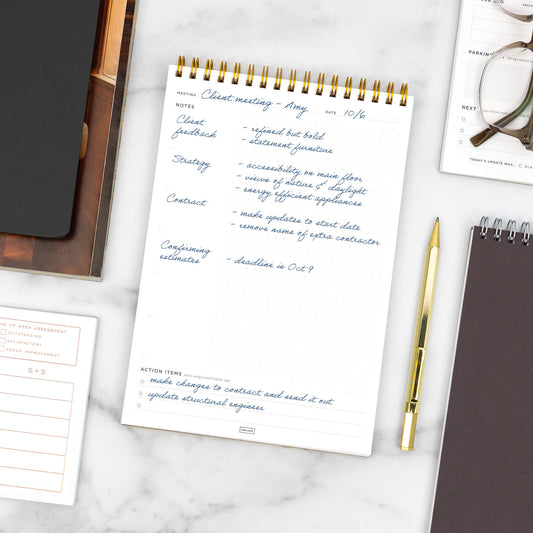 MEETING Client meeting - Amy DATE 10/6
NOTES
Client feedback
- refined but bold
- statement furniture
Strategy
- accessibility on main floor
- views of nature & daylight
- energy efficient appliances
Contract
- make updates to start date
- remove name of extra contractor
Confirming estimates
- deadline is Oct 9
ACTION ITEMS next steps and follow-ups
make changes to contract and send it out
update structural engineer
OF WEEK ASSESSMENT
OUTSTANDING
SATISFACTORY
NEEDS IMPROVEMENT
S+S
PARKIN
NEXT
TODAY'S UPDATE WAS